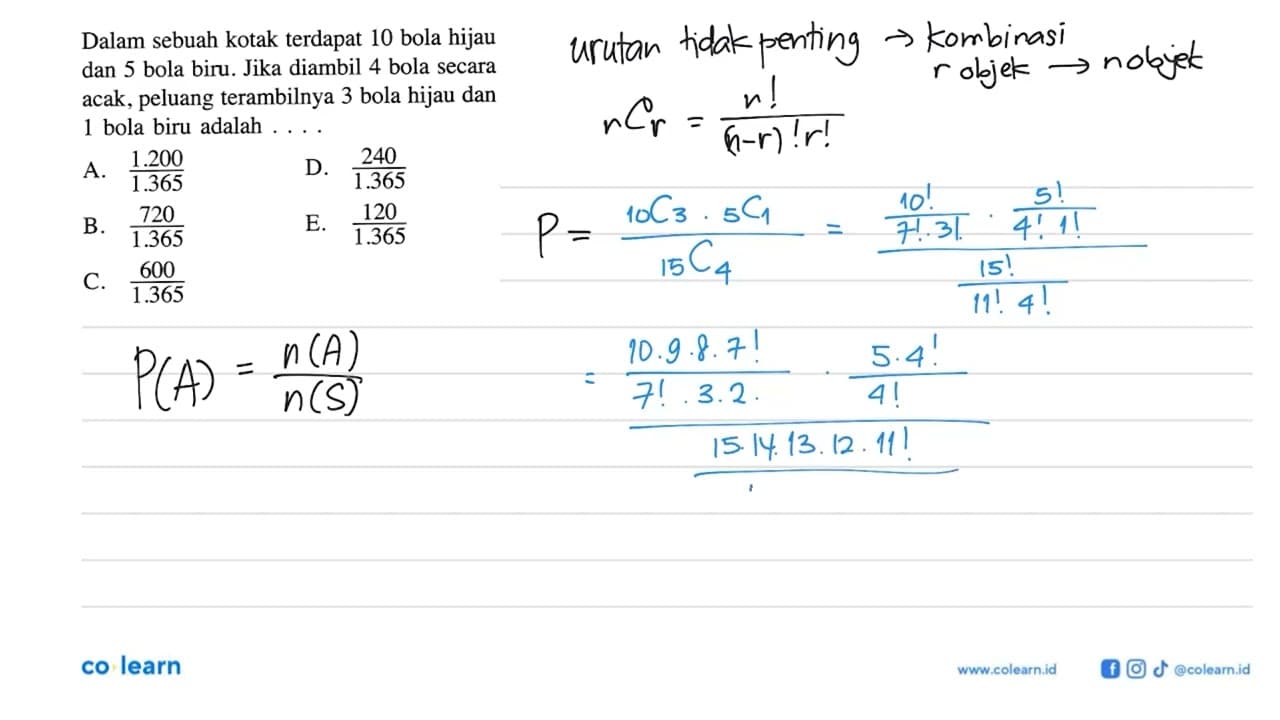 Dalam sebuah kotak terdapat 10 bola hijau
dan 5 bola biru. Jika diambil 4 bola secara
acak, peluang terambilnya 3 bola hijau dan
1 bola biru adalah . . . .
A. 1.200/1.365 D. 240/1.365
B. 720/1.365 E. 120/1.365
C. 600/1.365
P(A) = n(A)/n(S)
urutan tidak penting → kombinasi
r objek → n objek
nCr = n!/(n-r)!r!
P = 10C3 . 5C1 / 15C4 = 10!/7!.3! . 5!/4!.1! / 15!/11!.4!
= 10.9.8.7!/7!.3.2. . 5.4!/4!
15.14.13.12.11!
co learn
www.colearn.id
@colearn.id